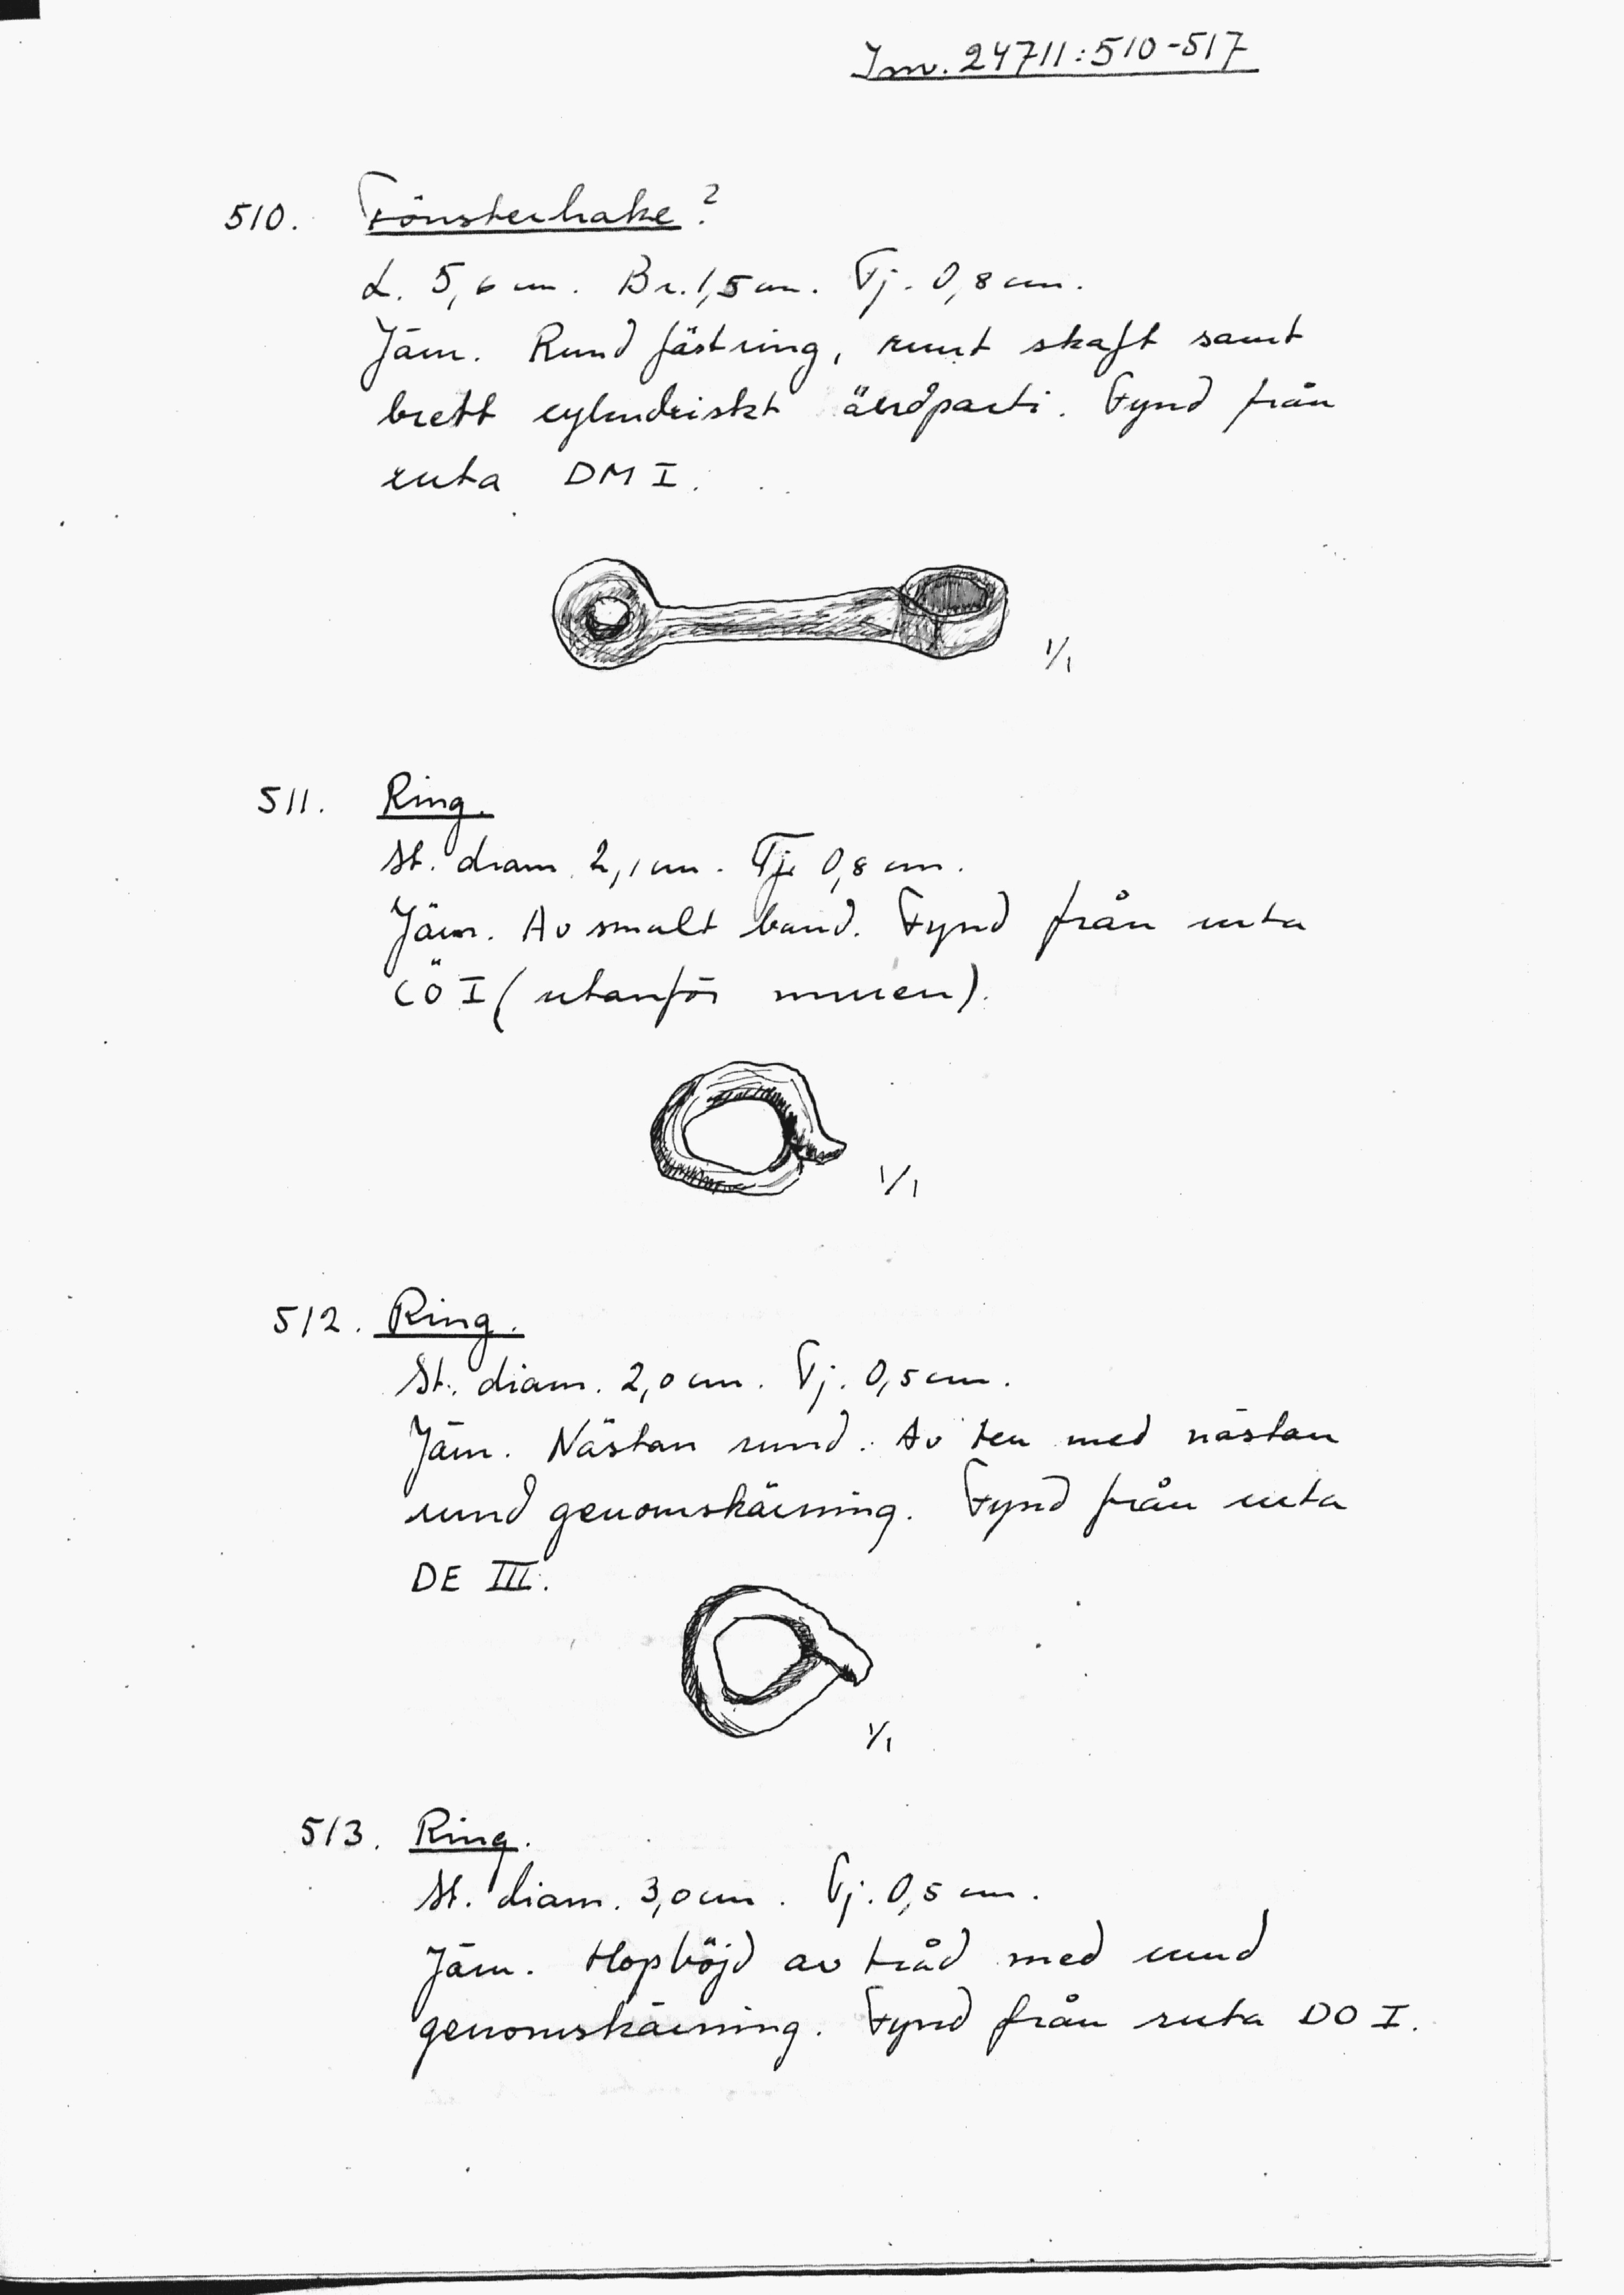 Inv. 24711:510-517
510. Fönsterhake?
L. 5,6 cm. Br. 1,5 cm. Tj. 0,8 cm.
Järn. Rund fästring, runt skaft samt
brett cylindriskt ändparti. Fynd från
ruta DM I.
1/1
511. Ring.
St. diam. 2,1 cm. Tj. 0,8 cm.
Järn. Av smalt band. Fynd från ruta
CÖ I (utanför muren).
1/1
512. Ring.
St. diam. 2,0 cm. Tj. 0,5 cm.
Järn. Nästan rund. Av ten med nästan
rund genomskärning. Fynd från ruta
DE III.
1/1
513. Ring.
St. diam. 3,0 cm. Tj. 0,5 cm.
Järn. Hopböjd av tråd med rund
genomskärning. Fynd från ruta DO I.